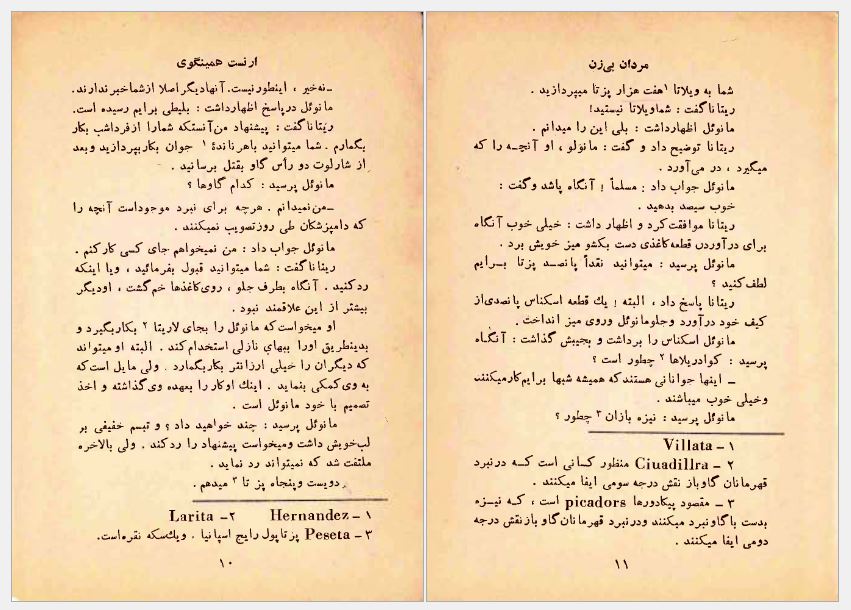 ارنست همینگوی
ـ نه خیر ، اینطور نیست. آنها دیگر اصلا ازشما خبر ندارند.
مانوئل در پاسخ اظهار داشت : بلیطی برایم رسیده است.
رتانا گفت : پیشنهاد من آنستکه شما را از فردا شب بکار
بگمارم . شما میتوانید باهر ناندهٔ ۱ جوان بکار بپردازید وبعد
از شارلوت دو رأس گاو بقتل برسانید .
مانوئل پرسید : کدام گاوها ؟
ـ من نمیدانم . هرچه برای نبرد موجود است آنچه را
که دامپزشکان طی روز تصویب نمیکنند .
مانوئل جواب داد : من نمیخواهم جای کسی کار کنم .
ریتانا گفت : شما میتوانید قبول بفرمائید ، ویا اینکه
رد کنید . آنگاه بطرف جلو ، روی کاغذها خم گشت ، او دیگر
بیشتر از این علاقمند نبود .
او میخواست که مانوئل را بجای لاریتا ۲ بکار بگیرد و
بدینطریق او را ببهای نازلی استخدام کند . البته او میتواند
که دیگران را خیلی ارزانتر بکار بگمارد . ولی مایل است که
به وی کمکی بنماید . اینك او کار را بعهده وی گذاشته و اخذ
تصمیم با خود مانوئل است .
مانوئل پرسید : چند خواهید داد ؟ و تبسم خفیفی بر
لب خویش داشت ومیخواست پیشنهاد را رد کند . ولی بالاخره
ملتفت شد که نمیتواند رد نماید .
دویست وپنجاه پز تا ۳ میدهم .
۱ – Hernandez ۲ – Larita
۳ – Peseta پزتا پول رایج اسپانیا . ویك سکه نقره است.
۱۰
مردان بی‌زن
شما به ویلاتا ۱ هفت هزار پز تا میپردازید .
ریتانا گفت : شما ویلاتا نیستید!
مانوئل اظهار داشت : بلی این را میدانم .
ریتانا توضیح داد و گفت : مانولو ، او آنچـه را که
میگیرد ، در می‌آورد .
مانوئل جواب داد : مسلماً ! آنگاه پاشد وگفت :
خوب سیصد بدهید .
ریتانا موافقت کرد و اظهار داشت : خیلی خوب آنگاه
برای در آوردن قطعه کاغذی دست بکشو میز خویش برد .
مانوئل پرسید : میتوانید نقداً پانصـد پزتا بـرایم
لطف کنید ؟
ریتانا پاسخ داد ، البته ! یك قطعه اسکناس پانصدی از
کیف خود در آورد وجلو مانوئل وروی میز انداخت .
مانوئل اسکناس را برداشت و بجیبش گذاشت : آنگـاه
پرسید : کوادریلاها ۲ چطور است ؟
ـ اینها جوانانی هستند که همیشه شبها برایم کار میکنند
وخیلی خوب میباشند .
مانوئل پرسید : نیزه بازان ۳ چطور ؟
۱ – Villata
۲ – Ciuadillra منظور کسانی است کـه در نبرد
قهرمانان گاوباز نقش درجه سومی ایفا میکنند .
۳ – مقصود پیکادورها picadors است ، کـه نیـزه
بدست با گاو نبرد میکنند ودر نبرد قهرمانان گاو باز نقش درجه
دومی ایفا میکنند .
۱۱